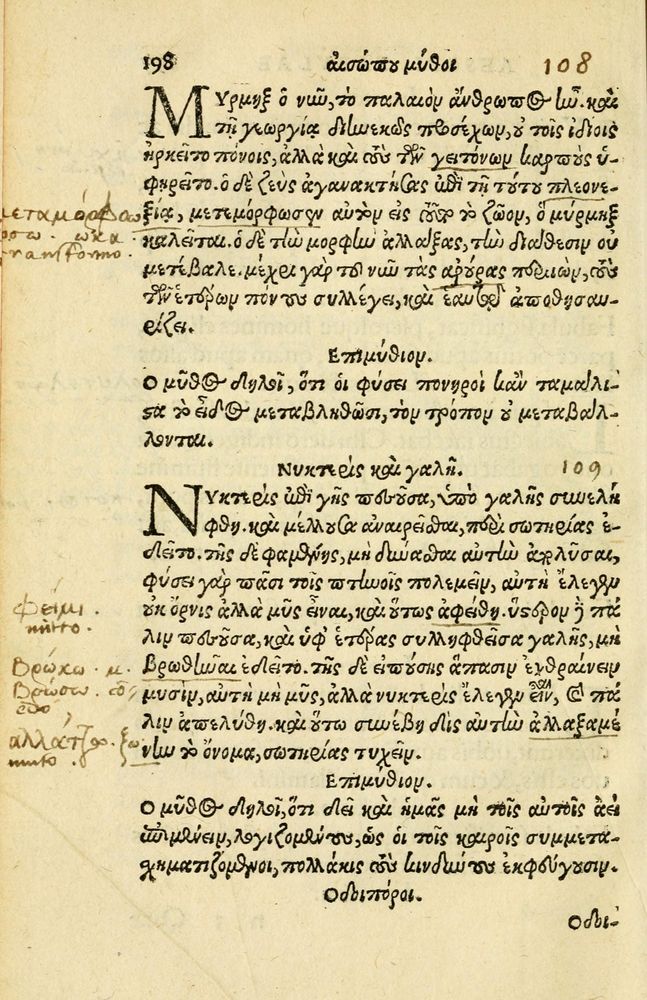 198 αἰσώπου μῦθοι 108
Μύρμηξ ὁ νῦν, τὸ παλαιὸν ἄνθρωπος ἦν. καὶ
τῇ γεωργίᾳ διηνεκῶς προσέχων, οὐ τοῖς ἰδίοις
ἠρκεῖτο πόνοις, ἀλλὰ καὶ τοὺς τῶν γειτόνων καρποὺς ὑ-
φῃρεῖτο. ὁ δὲ ζεὺς ἀγανακτήσας ἐπὶ τῇ τούτου πλεονε-
ξίᾳ, μετεμόρφωσεν αὐτὸν εἰς τοῦτο τὸ ζῶον, ὃ μύρμηξ
καλεῖται. ὁ δὲ τὴν μορφὴν ἀλλάξας, τὴν διάθεσιν οὐ
μετέβαλε. μέχρι γὰρ τοῦ νῦν τὰς ἀρούρας περιιὼν, τοὺς
τῶν ἑτέρων πόνους συλλέγει, καὶ ἑαυτῷ ἀποθησαυ-
ρίζει.
Ἐπιμύθιον.
Ὁ μῦθος δηλοῖ, ὅτι οἱ φύσει πονηροὶ κἂν τὰ μάλι-
στα τὸ εἶδος μεταβληθῶσι, τὸν τρόπον οὐ μεταβάλ-
λονται.
Νυκτερὶς καὶ γαλῆ. 109
Νυκτερὶς ἐπὶ γῆς πεσοῦσα, ὑπὸ γαλῆς συνελή
φθη. καὶ μέλλουσα ἀναιρεῖσθαι, περὶ σωτηρίας ἐ-
δεῖτο. τῆς δὲ φαμένης, μὴ δύνασθαι αὐτὴν ἀπολῦσαι,
φύσει γὰρ πᾶσι τοῖς πτηνοῖς πολεμεῖν, αὐτὴ ἔλεγεν
οὐκ ὄρνις ἀλλὰ μῦς εἶναι, καὶ οὕτως ἀφείθη. ὕστερον δὲ πά
λιν πεσοῦσα, καὶ ὑφ' ἑτέρας συλληφθεῖσα γαλῆς, μὴ
βρωθῆναι ἐδεῖτο. τῆς δὲ εἰπούσης ἅπασιν ἐχθραίνειν
μυσὶν, αὐτὴ μὴ μῦς, ἀλλὰ νυκτερὶς ἔλεγεν εἶναι, καὶ πά
λιν ἀπελύθη. καὶ οὕτω συνέβη δὶς αὐτὴν ἀλλαξαμέ
νην τὸ ὄνομα, σωτηρίας τυχεῖν.
Ἐπιμύθιον.
Ὁ μῦθος δηλοῖ, ὅτι δεῖ καὶ ἡμᾶς μὴ τοῖς αὐτοῖς ἀεὶ
ἐπιμένειν, λογιζομένους, ὡς οἱ τοῖς καιροῖς συμμετα-
σχηματιζόμενοι, πολλάκις τοὺς κινδύνους ἐκφεύγουσιν.
Ὁδοιπόροι.
Ὁδοι-
transformo.
mitto.
βρώκω. μ.
βρώσω.
edo
ἀλλάττω. ξω
muto.